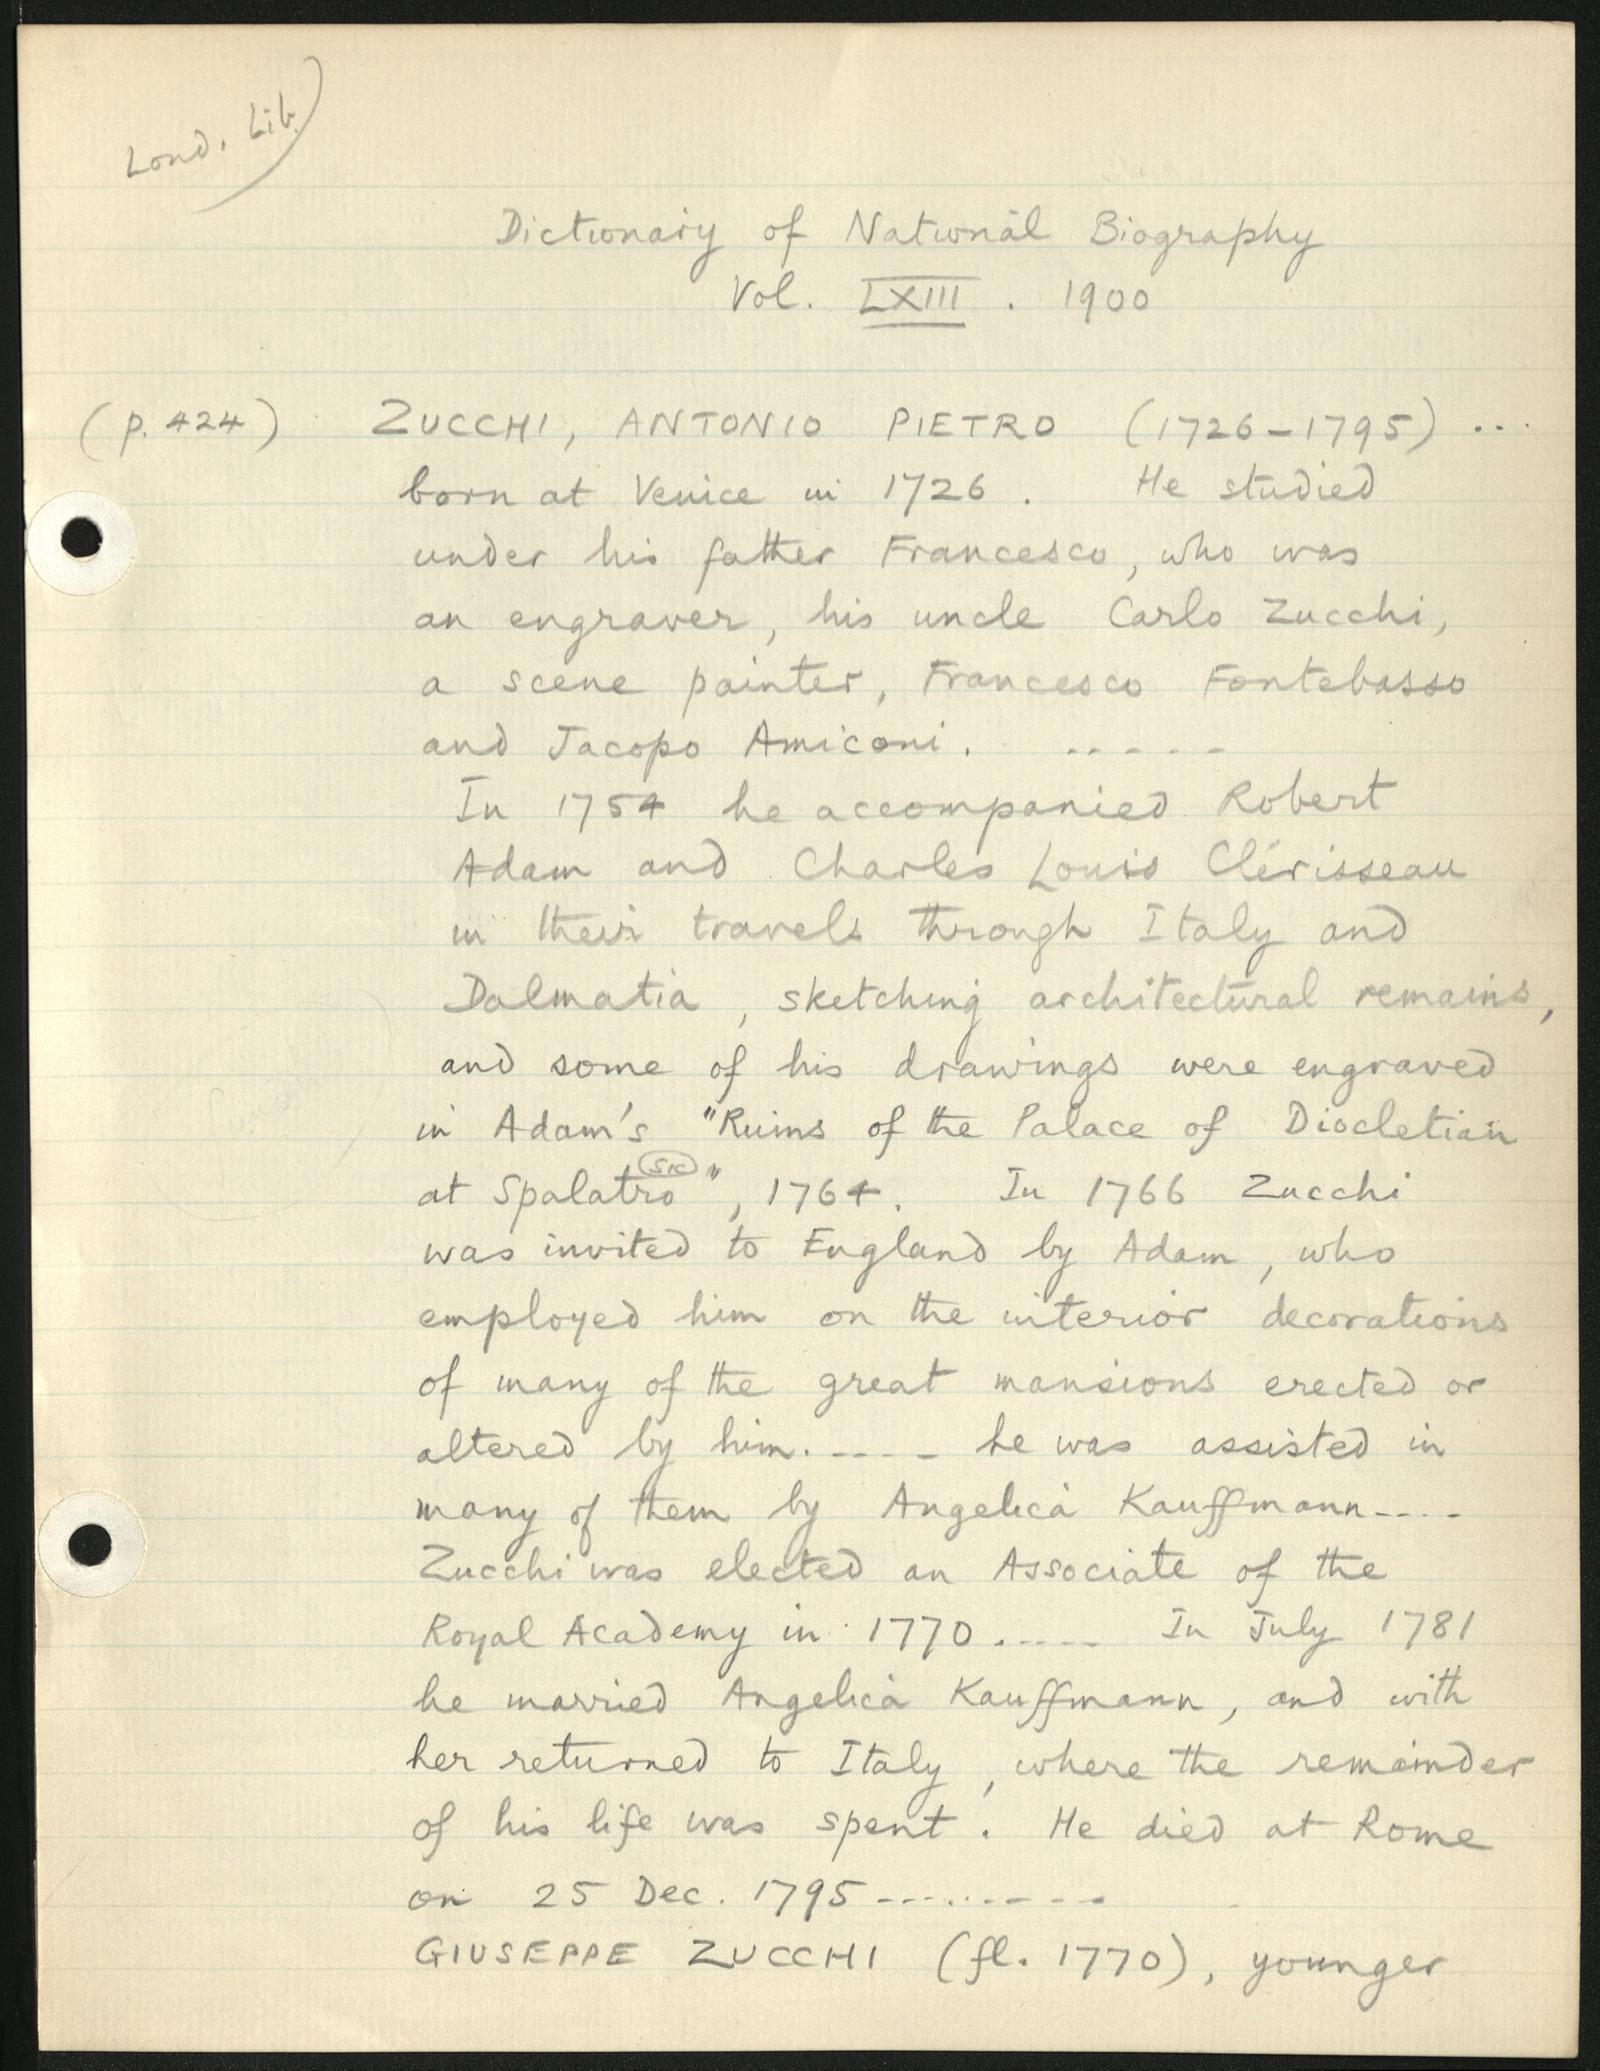 Lond. Lib.
Dictionary of National Biography
Vol. LXIII. 1900
(p. 424) ZUCCHI, ANTONIO PIETRO (1726–1795) ...
born at Venice in 1726. He studied
under his father Francesco, who was
an engraver, his uncle Carlo Zucchi,
a scene painter, Francesco Fontebasso
and Jacopo Amiconi. -----
In 1754 he accompanied Robert
Adam and Charles Louis Clérisseau
in their travels through Italy and
Dalmatia, sketching architectural remains,
and some of his drawings were engraved
in Adam's "Ruins of the Palace of Diocletian
at Spalatro (sic)", 1764. In 1766 Zucchi
was invited to England by Adam, who
employed him on the interior decorations
of many of the great mansions erected or
altered by him. ---- he was assisted in
many of them by Angelica Kauffmann----
Zucchi was elected an Associate of the
Royal Academy in 1770.---- In July 1781
he married Angelica Kauffmann, and with
her returned to Italy, where the remainder
of his life was spent. He died at Rome
on 25 Dec. 1795---------
GIUSEPPE ZUCCHI (fl. 1770), younger